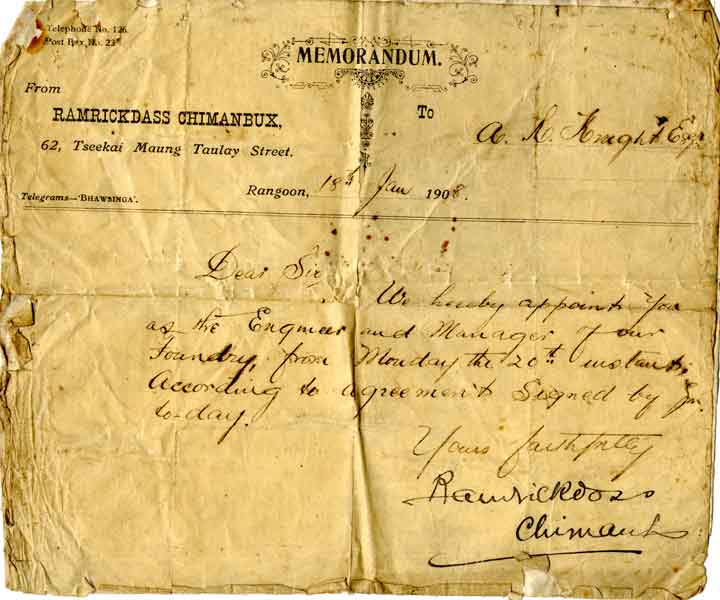 Telephone No. 126.
Post Box No. 23
MEMORANDUM.
From
RAMRICKDASS CHIMANBUX,
To
A. R. Knight Esqr
62, Tseekai Maung Taulay Street.
Rangoon, 18th Jan 1908.
Telegrams—'BHAWSINGA'.
Dear Sir
We hereby appoint you
as the Engineer and Manager of our
Foundry, from Monday the 20th instant.
According to agreement signed by
to-day.
Yours faithfully
Ramrickdoss
Chimanb